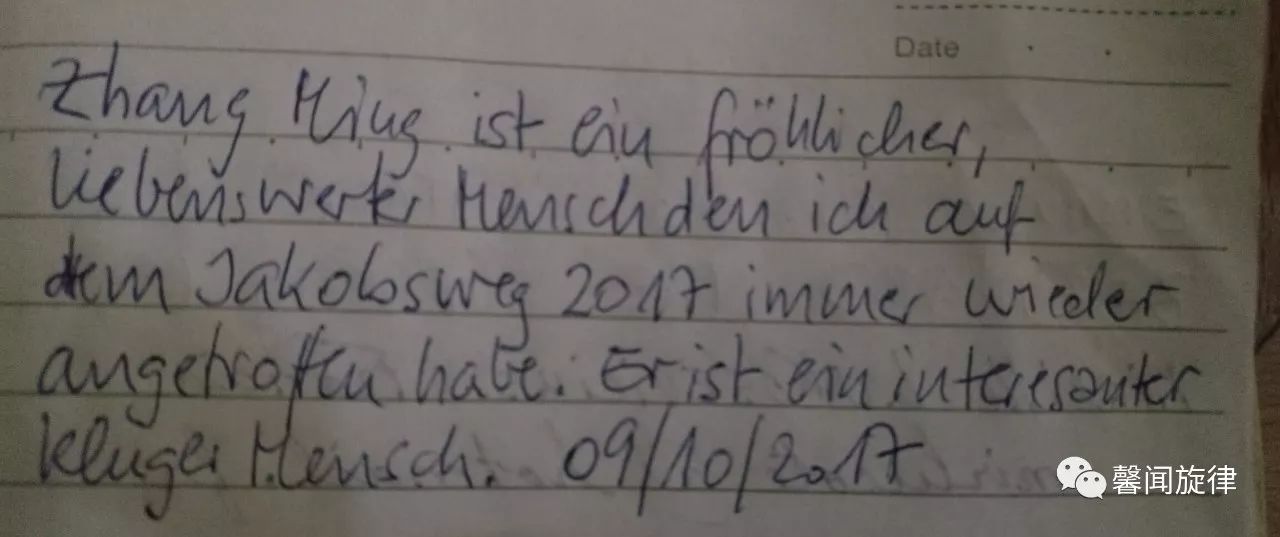 Date
Zhang Ming ist ein fröhlicher,
liebenswerter Mensch den ich auf
dem Jakobsweg 2017 immer wieder
angetroffen habe. Er ist ein interesanter
kluger Mensch. 09/10/2017
馨闻旋律